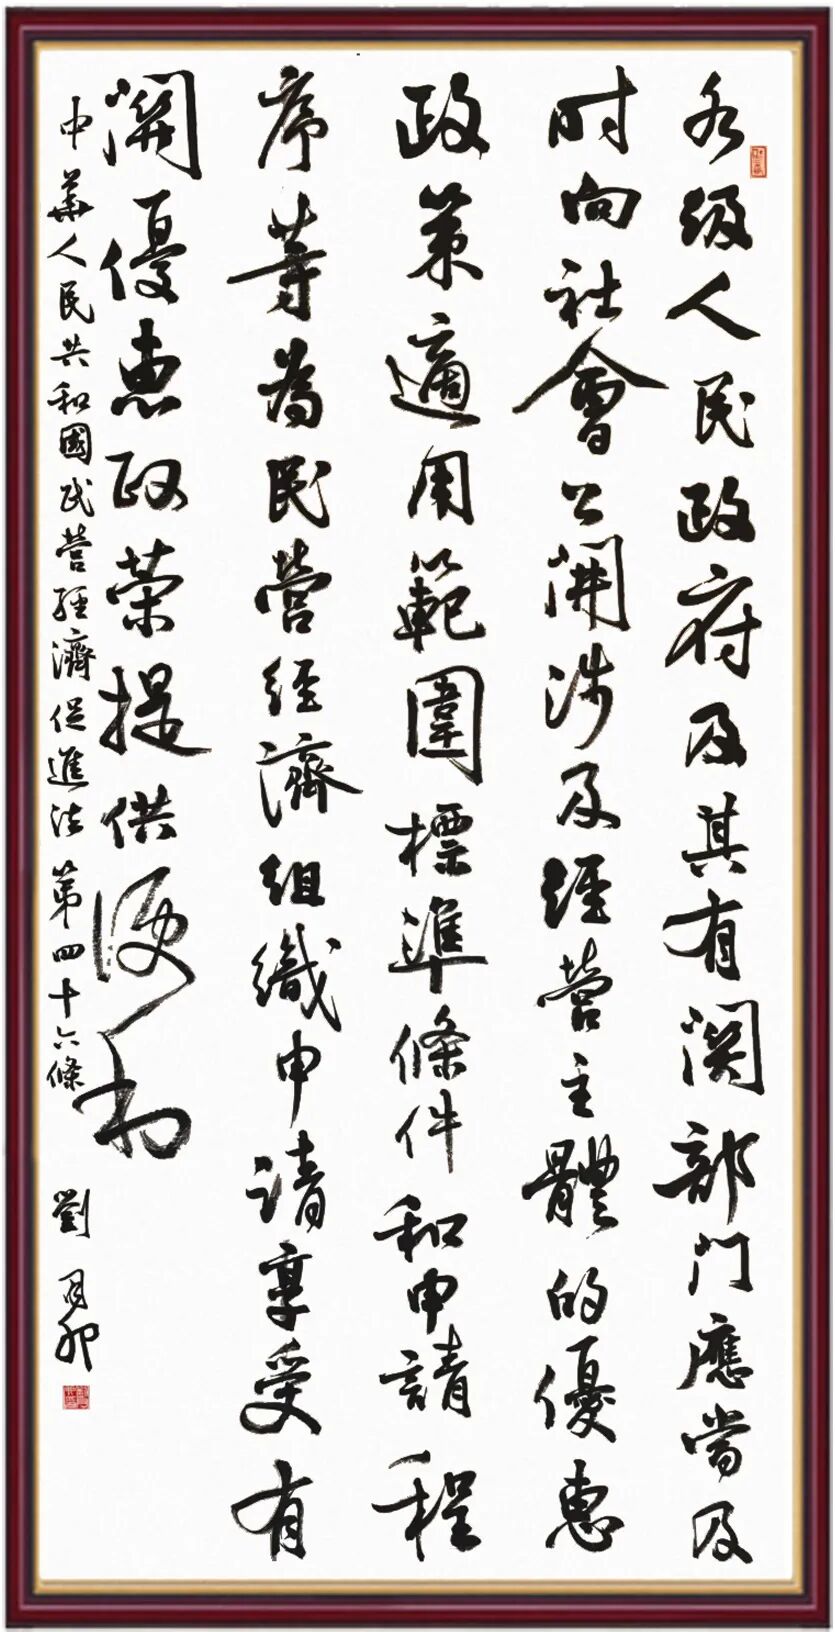 各级人民政府及其有関部门應當及
时向社會公開涉及經營主體的優惠
政策適用範圍標準條件和申請程
序等為民營经濟組織申请享受有
関優惠政策提供便利
中華人民共和國民營經濟促進法第四十六條 劉月卯